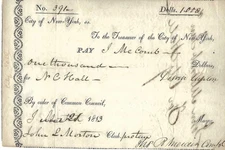 No. 391 Dolls. 1000
City of New-York, ss.
To the Treasurer of the City of New-York,
PAY J McComb Jr
One thousand Dollars
for N C Hall
By order of Common Council,
1813 Mayor
John L. Morton Clk protem